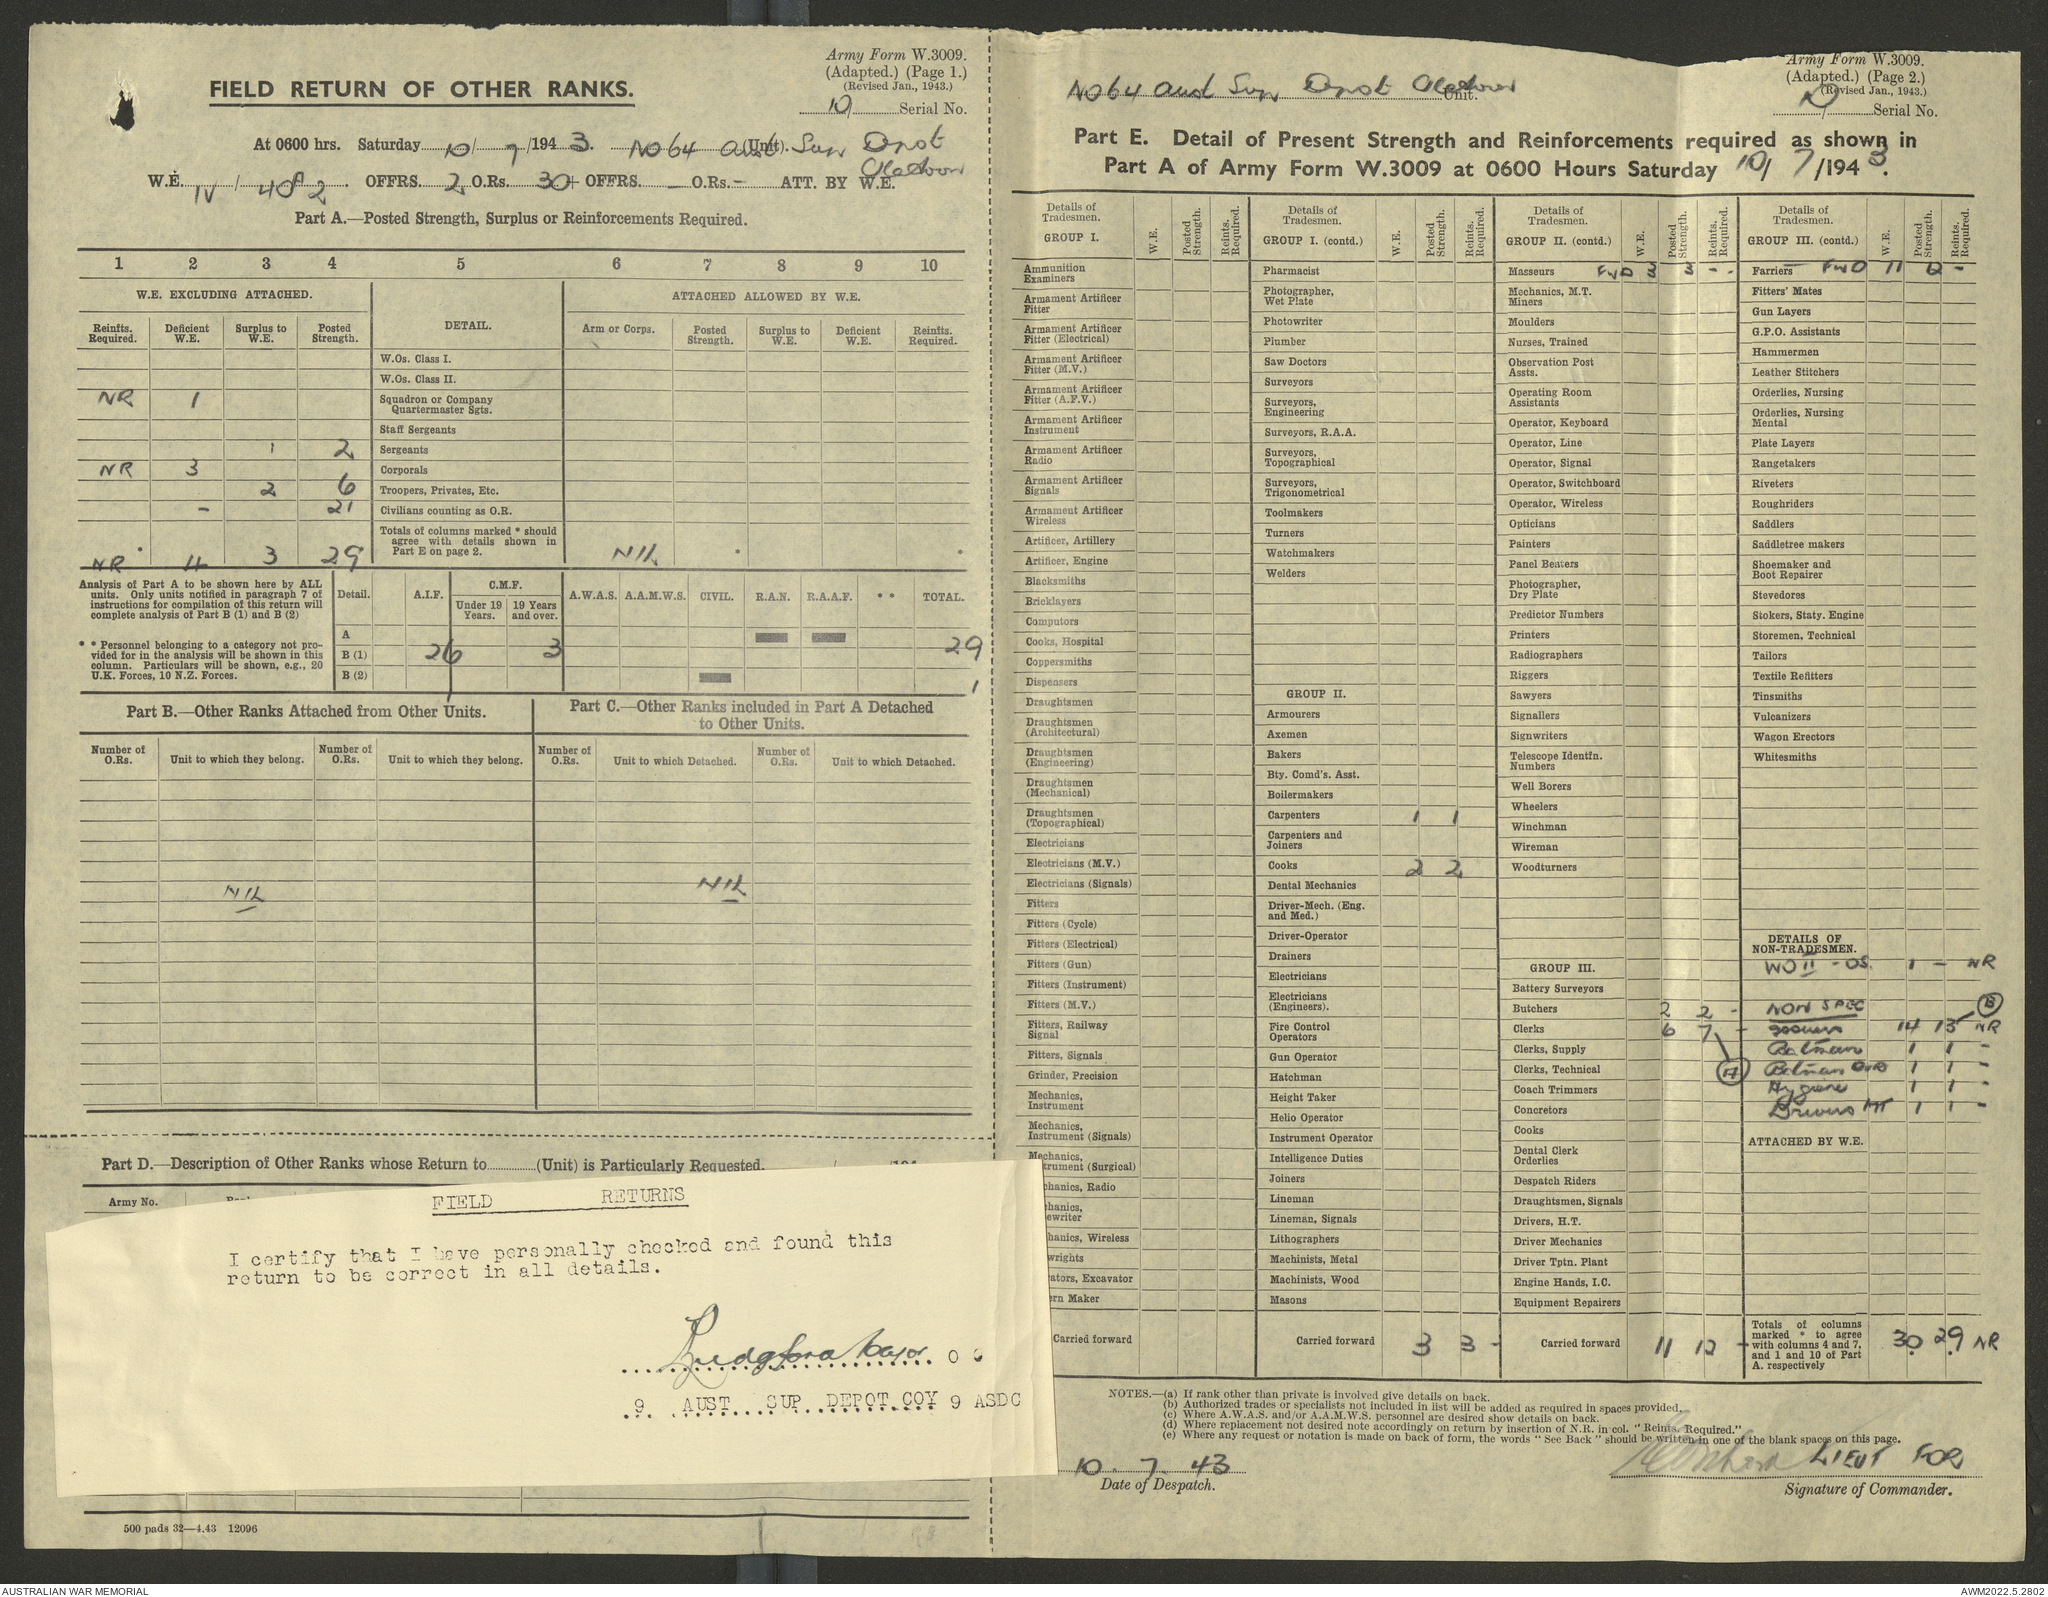 Army Form W.3009.
(Adapted.) (Page 1.)
(Revised Jan., 1943.)
10 Serial No.
FIELD RETURN OF OTHER RANKS.
At 0600 hrs. Saturday 10/7/1943. No 64 Aust Sup Depot (Unit).
W.E. IV / 408 2 OFFRS. 2 O.Rs. 30 + OFFRS. — O.Rs. – ATT. BY W.E.
Part A.—Posted Strength, Surplus or Reinforcements Required.
1 2 3 4 5 6 7 8 9 10
W.E. EXCLUDING ATTACHED. DETAIL. ATTACHED ALLOWED BY W.E.
Reinfts. Required. Deficient W.E. Surplus to W.E. Posted Strength. Arm or Corps. Posted Strength. Surplus to W.E. Deficient W.E. Reinfts. Required.
W.Os. Class I.
W.Os. Class II.
NR 1 Squadron or Company Quartermaster Sgts.
Staff Sergeants
1 2 Sergeants
NR 3 Corporals
2 6 Troopers, Privates, Etc.
– 21 Civilians counting as O.R.
Totals of columns marked * should agree with details shown in Part E on page 2.
NR 4 3 29 NIL
Analysis of Part A to be shown here by ALL units. Only units notified in paragraph 7 of instructions for compilation of this return will complete analysis of Part B (1) and B (2)
* * Personnel belonging to a category not provided for in the analysis will be shown in this column. Particulars will be shown, e.g., 20 U.K. Forces, 10 N.Z. Forces.
Detail. A.I.F. C.M.F. Under 19 Years. 19 Years and over. A.W.A.S. A.A.M.W.S. CIVIL. R.A.N. R.A.A.F. * * TOTAL.
A
B (1) 26 3 29
B (2) 1
Part B.—Other Ranks Attached from Other Units.
Number of O.Rs. Unit to which they belong. Number of O.Rs. Unit to which they belong.
NIL
Part C.—Other Ranks included in Part A Detached to Other Units.
Number of O.Rs. Unit to which Detached. Number of O.Rs. Unit to which Detached.
NIL
Part D.—Description of Other Ranks whose Return to (Unit) is Particularly Requested.
Army No.
FIELD RETURNS
I certify that I have personally checked and found this
return to be correct in all details.
Major O C
9 AUST SUP DEPOT COY 9 ASDC
500 pads 32—4.43 12096
No 64 Aust Sup Depot Unit.
Army Form W.3009.
(Adapted.) (Page 2.)
(Revised Jan., 1943.)
10 Serial No.
Part E. Detail of Present Strength and Reinforcements required as shown in
Part A of Army Form W.3009 at 0600 Hours Saturday 10/7/1943.
Details of Tradesmen. W.E. Posted Strength. Reints. Required.
GROUP I.
Ammunition Examiners
Armament Artificer Fitter
Armament Artificer Fitter (Electrical)
Armament Artificer Fitter (M.V.)
Armament Artificer Fitter (A.F.V.)
Armament Artificer Instrument
Armament Artificer Radio
Armament Artificer Signals
Armament Artificer Wireless
Artificer, Artillery
Artificer, Engine
Blacksmiths
Bricklayers
Computors
Cooks, Hospital
Coppersmiths
Dispensers
Draughtsmen
Draughtsmen (Architectural)
Draughtsmen (Engineering)
Draughtsmen (Mechanical)
Draughtsmen (Topographical)
Electricians
Electricians (M.V.)
Electricians (Signals)
Fitters
Fitters (Cycle)
Fitters (Electrical)
Fitters (Gun)
Fitters (Instrument)
Fitters (M.V.)
Fitters, Railway Signal
Fitters, Signals
Grinder, Precision
Mechanics, Instrument
Mechanics, Instrument (Signals)
Mechanics, trument (Surgical)
hanics, Radio
hanics, ewriter
hanics, Wireless
wrights
ators, Excavator
ern Maker
Carried forward
Details of Tradesmen. W.E. Posted Strength. Reints. Required.
GROUP I. (contd.)
Pharmacist
Photographer, Wet Plate
Photowriter
Plumber
Saw Doctors
Surveyors
Surveyors, Engineering
Surveyors, R.A.A.
Surveyors, Topographical
Surveyors, Trigonometrical
Toolmakers
Turners
Watchmakers
Welders
GROUP II.
Armourers
Axemen
Bakers
Bty. Comd's. Asst.
Boilermakers
Carpenters 1 1
Carpenters and Joiners
Cooks 2 2
Dental Mechanics
Driver-Mech. (Eng. and Med.)
Driver-Operator
Drainers
Electricians
Electricians (Engineers).
Fire Control Operators
Gun Operator
Hatchman
Height Taker
Helio Operator
Instrument Operator
Intelligence Duties
Joiners
Lineman
Lineman, Signals
Lithographers
Machinists, Metal
Machinists, Wood
Masons
Carried forward 3 3 -
Details of Tradesmen. W.E. Posted Strength. Reints. Required.
GROUP II. (contd.)
Masseurs FWD 3 3 - -
Mechanics, M.T. Miners
Moulders
Nurses, Trained
Observation Post Assts.
Operating Room Assistants
Operator, Keyboard
Operator, Line
Operator, Signal
Operator, Switchboard
Operator, Wireless
Opticians
Painters
Panel Beaters
Photographer, Dry Plate
Predictor Numbers
Printers
Radiographers
Riggers
Sawyers
Signallers
Signwriters
Telescope Identfn. Numbers
Well Borers
Wheelers
Winchman
Wireman
Woodturners
GROUP III.
Battery Surveyors
Butchers 2 2 -
Clerks 6 7 -
Clerks, Supply
Clerks, Technical (A)
Coach Trimmers
Concretors
Cooks
Dental Clerk Orderlies
Despatch Riders
Draughtsmen, Signals
Drivers, H.T.
Driver Mechanics
Driver Tptn. Plant
Engine Hands, I.C.
Equipment Repairers
Carried forward 11 12 -
Details of Tradesmen. W.E. Posted Strength. Reints. Required.
GROUP III. (contd.)
Farriers FWD 11 12 -
Fitters' Mates
Gun Layers
G.P.O. Assistants
Hammermen
Leather Stitchers
Orderlies, Nursing
Orderlies, Nursing Mental
Plate Layers
Rangetakers
Riveters
Roughriders
Saddlers
Saddletree makers
Shoemaker and Boot Repairer
Stevedores
Stokers, Staty. Engine
Storemen, Technical
Tailors
Textile Refitters
Tinsmiths
Vulcanizers
Wagon Erectors
Whitesmiths
DETAILS OF NON-TRADESMEN.
WO II - OS. 1 – NR
NON SPEC (B)
14 13 NR
Batman 1 1 -
Batman 1 1 -
Hygiene 1 1 -
Drivers MT 1 1 -
ATTACHED BY W.E.
Totals of columns marked * to agree with columns 4 and 7, and 1 and 10 of Part A. respectively 30 29 NR
NOTES.—(a) If rank other than private is involved give details on back.
(b) Authorized trades or specialists not included in list will be added as required in spaces provided.
(c) Where A.W.A.S. and/or A.A.M.W.S. personnel are desired show details on back.
(d) Where replacement not desired note accordingly on return by insertion of N.R. in col. "Reints. Required."
(e) Where any request or notation is made on back of form, the words "See Back" should be written in one of the blank spaces on this page.
10. 7. 43
Date of Despatch.
LIEUT FOR
Signature of Commander.
AUSTRALIAN WAR MEMORIAL
AWM2022.5.2802